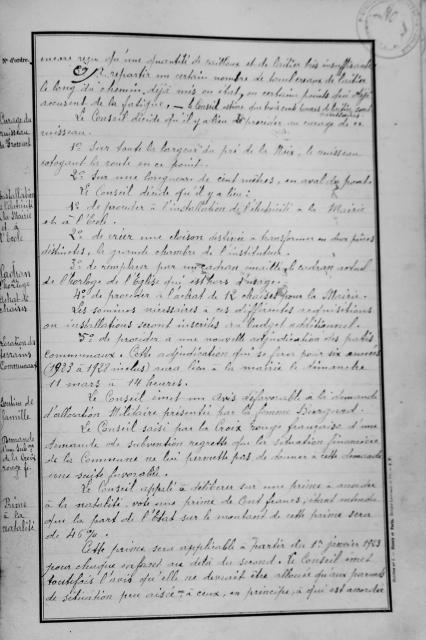 encore reçu qu'une quantité de cailloux et de laitier très insuffisante
répartir un certain nombre de tombereaux de laitier
le long du chemin, déjà mis en état, en certains points qui déjà
accusent de la fatigue. Le Conseil estime que trois cent tonnes de laitier sont
nécessaires
Curage du
ruisseau
Le Conseil décide qu'il y a lieu de procéder au curage de ce
ruisseau.
1º Sur toute la largeur du pré de la Noix, le ruisseau
cotoyant la route en ce point.
2º Sur une longueur de cent mètres, en aval du pont.
Le Conseil décide qu'il y a lieu :
Installation
d'électricité
à la Mairie
et à
l'Ecole
1º de procéder à l'installation de l'électricité à la Mairie
et à l'Ecole.
2º de créer une cloison destinée à transformer en deux pièces
distinctes, la grande chambre de l'instituteur.
Cadran
l'horloge
achat de
chaises
3º de remplacer par un cadran émaillé le cadran actuel
de l'horloge de l'Eglise qui est hors d'usage.
4º de procéder à l'achat de 12 chaises pour la Mairie.
Les sommes nécessaires à ces différentes acquisitions
ou installations seront inscrites au budget additionnel.
Location des
terrains
Communaux
5º de procéder à une nouvelle adjudication des pâtis
communaux. Cette adjudication qui se fera pour six années
(1923 à 1928 inclus) aura lieu à la mairie le dimanche
11 mars à 14 heures.
Soutien de
famille
Le Conseil émet un avis défavorable à la demande
d'allocation Militaire présentée par la femme
Demande
d'une subv on
de la Croix
rouge fr.
Le Conseil saisi par la Croix Rouge française d'une
demande de subvention regrette que la situation financière
de la Commune ne lui permette pas de donner à cette demande
une suite favorable.
Prime
à la
natalité
Le Conseil appelé à délibérer sur une prime à accorder
à la natalité, vote une prime de Cent francs, étant entendu
que la part de l'Etat sur le montant de cette prime sera
de 46%.
Cette prime sera applicable à partir du 1er janvier 1923
pour chaque enfant au delà du second. Le Conseil émet
toutefois l'avis qu'elle ne devrait être allouée qu'aux parents
de situation peu aisée et à ceux, en principe, à qui est accordée